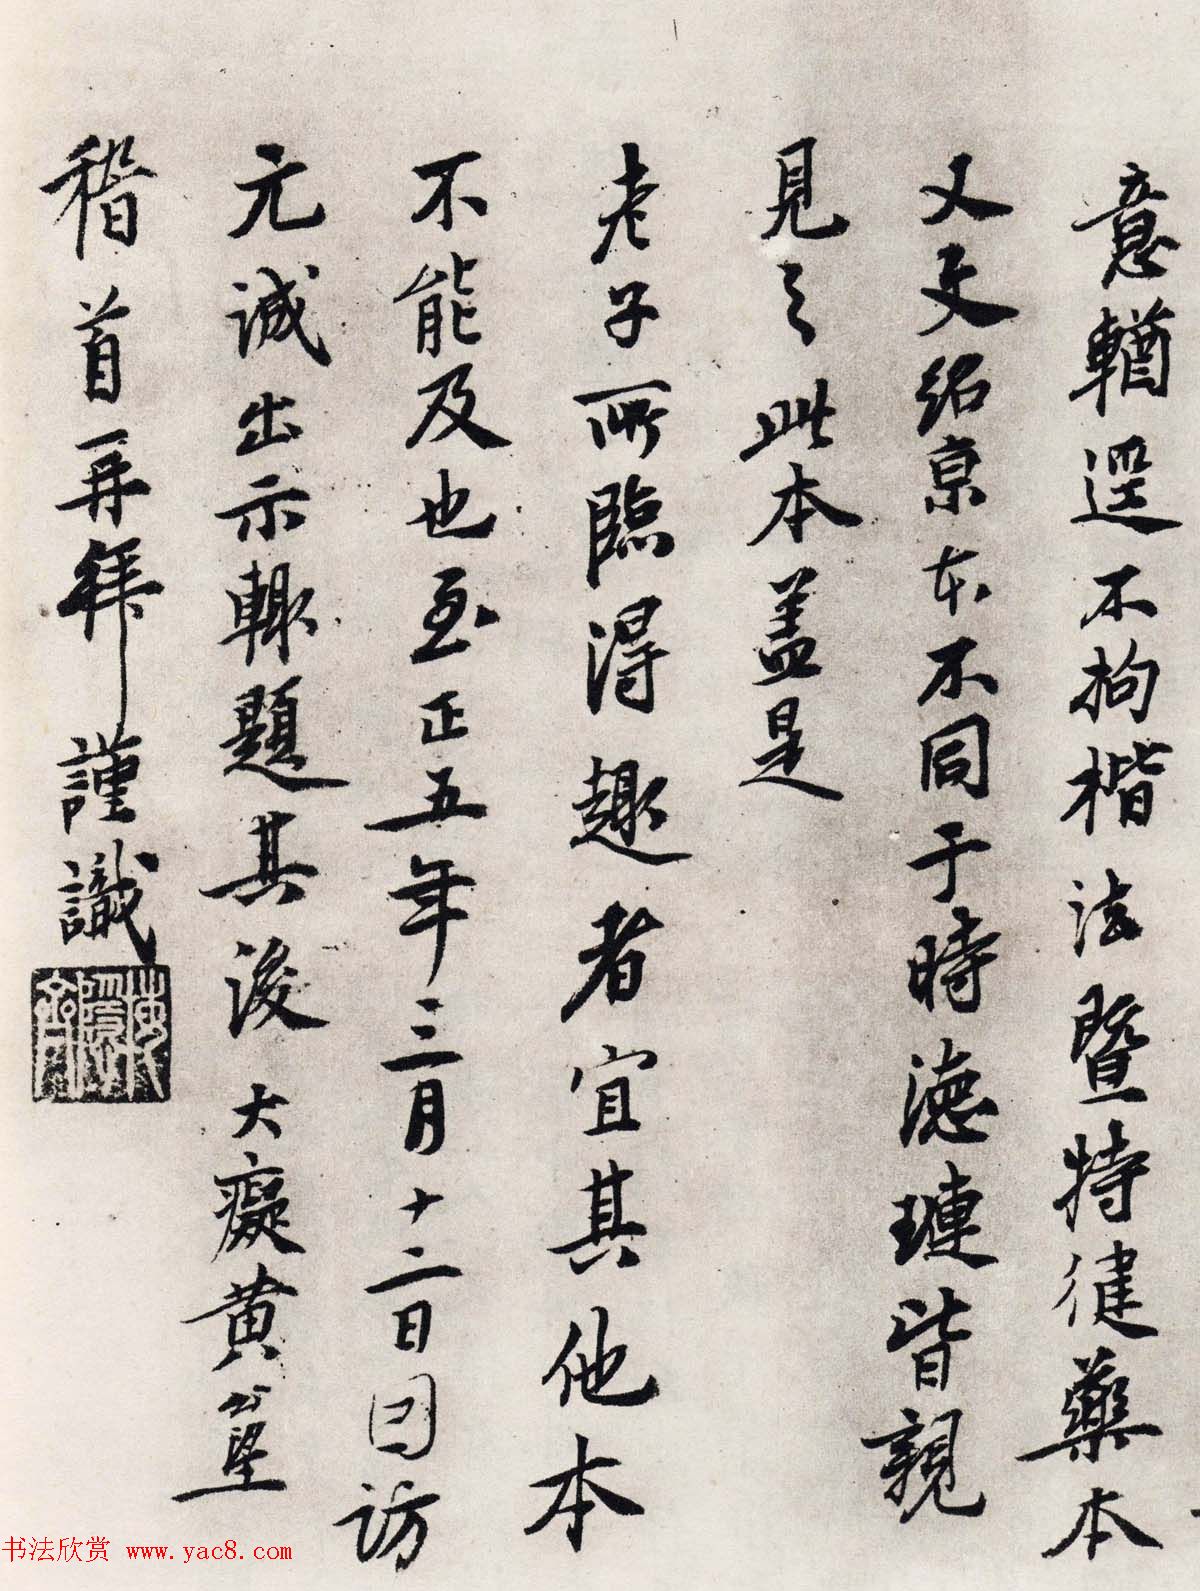 意輶逕不拘楷法暨特健藥本
又文紹京本不同于時德璉皆親
見之此本盖是
老子所臨得趣者宜其他本
不能及也至正五年三月十二日因訪
元誠出示輙題其後大癡黄公望
稽首再拜謹識
書法欣赏 www.yac8.com